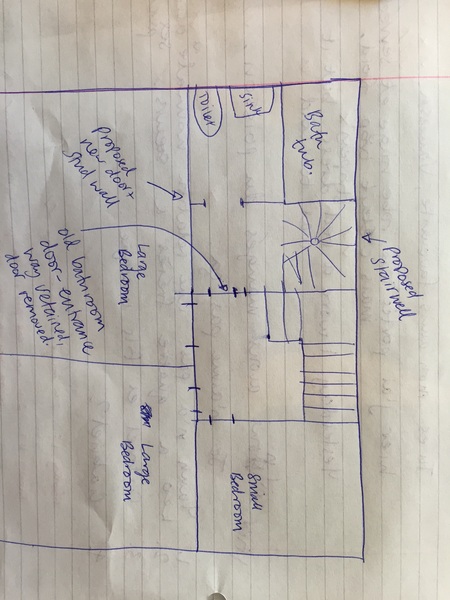 Proposed
Stairwell
Bath
tub.
Sink
Toilet
Small
Bedroom
proposed
new door +
stud wall
Large
Bedroom
Large
Bedroom
old bathroom
door-entrance
way retained,
door removed.